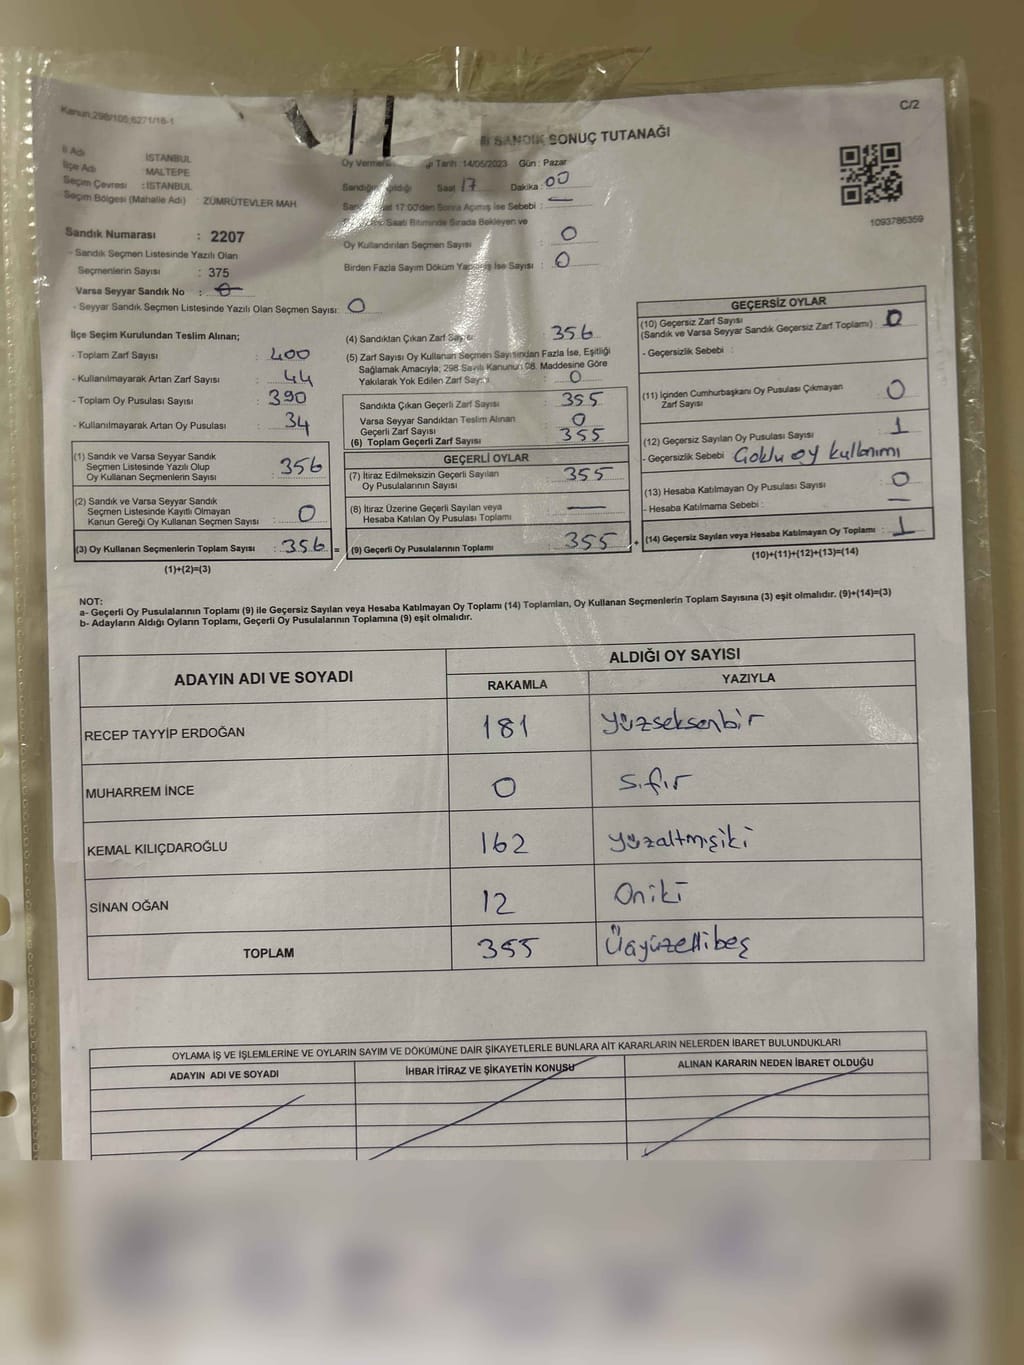 Kanun:298/105;6271/18-1
C/2
SANDIK SONUÇ TUTANAĞI
İl Adı İSTANBUL
İlçe Adı MALTEPE
Seçim Çevresi : İSTANBUL
Seçim Bölgesi (Mahalle Adı) : ZÜMRÜTEVLER MAH
Sandık Numarası : 2207
- Sandık Seçmen Listesinde Yazılı Olan
Seçmenlerin Sayısı : 375
Varsa Seyyar Sandık No : 0
- Seyyar Sandık Seçmen Listesinde Yazılı Olan Seçmen Sayısı: 0
Oy Verme Tarih : 14/05/2023 Gün : Pazar
Sandığın Saat 17 Dakika : 00
17:00'den Sonra Açılmış İse Sebebi : —
Saati Bitiminde Sırada Bekleyen ve
Oy Kullandırılan Seçmen Sayısı : 0
Birden Fazla Sayım Döküm İse Sayısı : 0
1093786359
İlçe Seçim Kurulundan Teslim Alınan;
- Toplam Zarf Sayısı : 400
- Kullanılmayarak Artan Zarf Sayısı : 44
- Toplam Oy Pusulası Sayısı : 390
- Kullanılmayarak Artan Oy Pusulası : 34
(1) Sandık ve Varsa Seyyar Sandık
Seçmen Listesinde Yazılı Olup
Oy Kullanan Seçmenlerin Sayısı : 356
(2) Sandık ve Varsa Seyyar Sandık
Seçmen Listesinde Kayıtlı Olmayan
Kanun Gereği Oy Kullanan Seçmen Sayısı : 0
(3) Oy Kullanan Seçmenlerin Toplam Sayısı : 356 =
(1)+(2)=(3)
(4) Sandıktan Çıkan Zarf Sayısı : 356
(5) Zarf Sayısı Oy Kullanan Seçmen Sayısından Fazla İse, Eşitliği
Sağlamak Amacıyla; 298 Sayılı Kanunun 98. Maddesine Göre
Yakılarak Yok Edilen Zarf Sayısı : 0
Sandıkta Çıkan Geçerli Zarf Sayısı : 355
Varsa Seyyar Sandıktan Teslim Alınan
Geçerli Zarf Sayısı : 0
(6) Toplam Geçerli Zarf Sayısı : 355
GEÇERLİ OYLAR
(7) İtiraz Edilmeksizin Geçerli Sayılan
Oy Pusulalarının Sayısı : 355
(8) İtiraz Üzerine Geçerli Sayılan veya
Hesaba Katılan Oy Pusulası Toplamı : —
(9) Geçerli Oy Pusulalarının Toplamı : 355 +
GEÇERSİZ OYLAR
(10) Geçersiz Zarf Sayısı
(Sandık ve Varsa Seyyar Sandık Geçersiz Zarf Toplamı) : 0
- Geçersizlik Sebebi :
(11) İçinden Cumhurbaşkanı Oy Pusulası Çıkmayan
Zarf Sayısı : 0
(12) Geçersiz Sayılan Oy Pusulası Sayısı : 1
- Geçersizlik Sebebi Çoklu oy kullanımı
(13) Hesaba Katılmayan Oy Pusulası Sayısı : 0
- Hesaba Katılmama Sebebi : —
(14) Geçersiz Sayılan veya Hesaba Katılmayan Oy Toplamı : 1
(10)+(11)+(12)+(13)=(14)
NOT:
a- Geçerli Oy Pusulalarının Toplamı (9) ile Geçersiz Sayılan veya Hesaba Katılmayan Oy Toplamı (14) Toplamları, Oy Kullanan Seçmenlerin Toplam Sayısına (3) eşit olmalıdır. (9)+(14)=(3)
b- Adayların Aldığı Oyların Toplamı, Geçerli Oy Pusulalarının Toplamına (9) eşit olmalıdır.
ADAYIN ADI VE SOYADI
ALDIĞI OY SAYISI
RAKAMLA YAZIYLA
RECEP TAYYİP ERDOĞAN 181 Yüzseksenbir
MUHARREM İNCE 0 Sıfır
KEMAL KILIÇDAROĞLU 162 Yüzaltmışiki
SİNAN OĞAN 12 Oniki
TOPLAM 355 Üçyüzellibeş
OYLAMA İŞ VE İŞLEMLERİNE VE OYLARIN SAYIM VE DÖKÜMÜNE DAİR ŞİKAYETLERLE BUNLARA AİT KARARLARIN NELERDEN İBARET BULUNDUKLARI
ADAYIN ADI VE SOYADI İHBAR İTİRAZ VE ŞİKAYETİN KONUSU ALINAN KARARIN NEDEN İBARET OLDUĞU